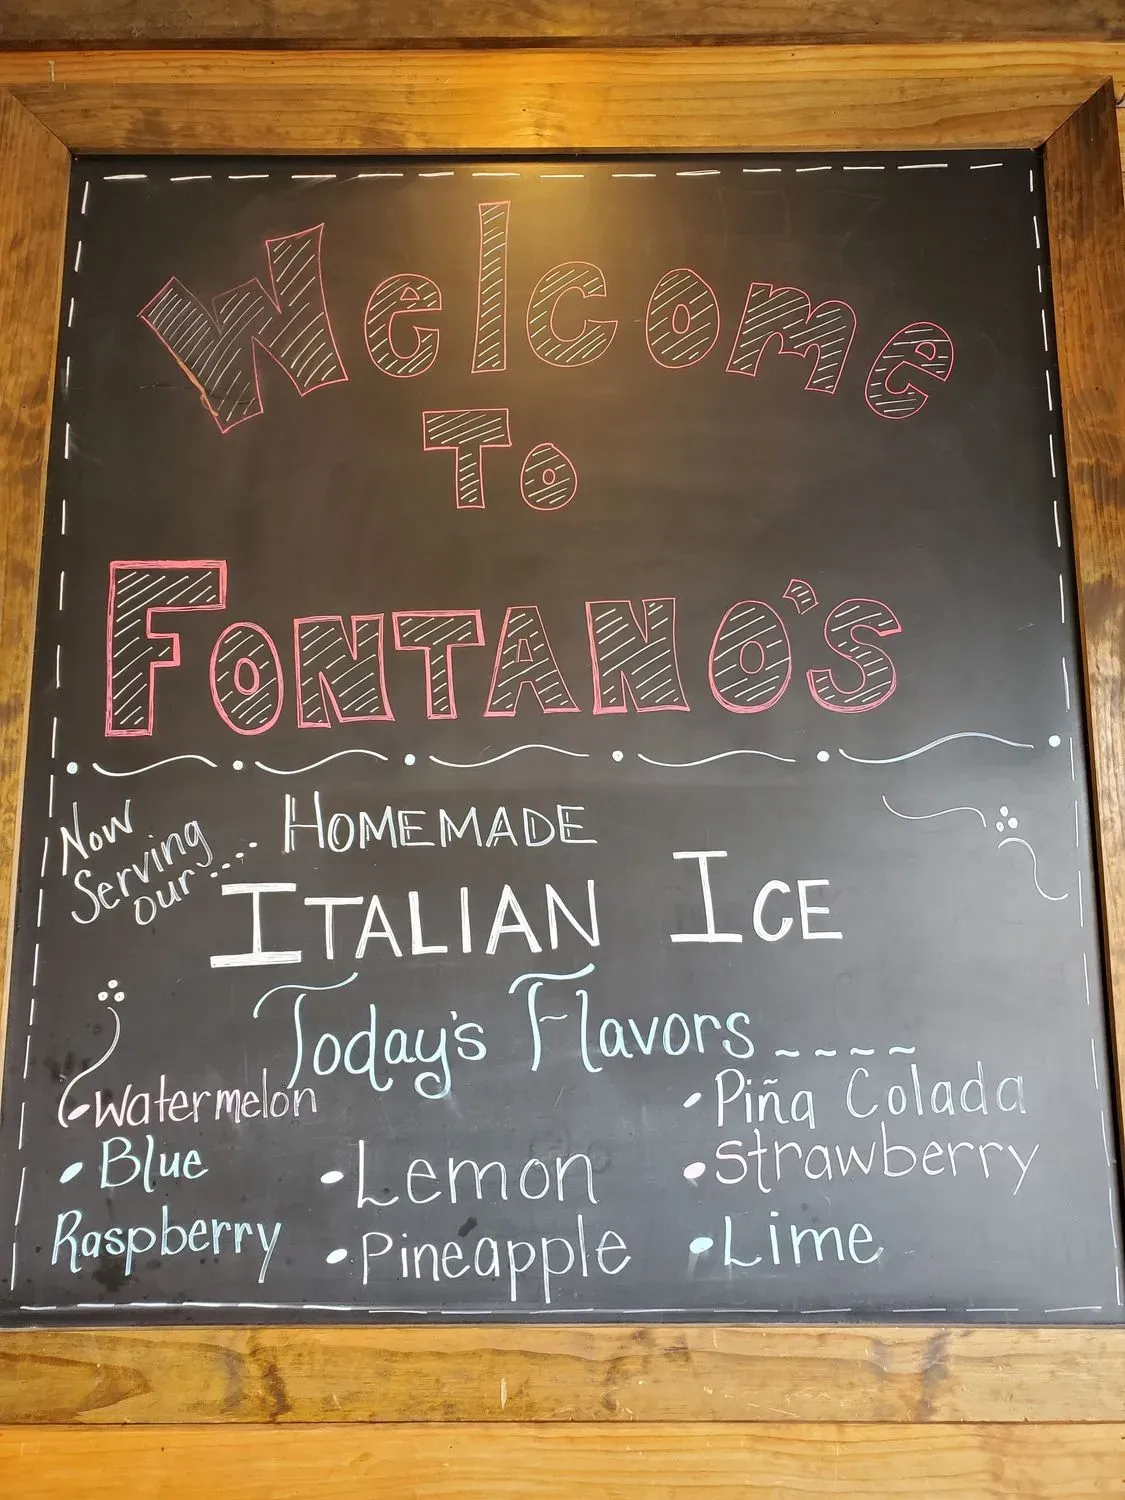 Welcome
To
FONTANO'S
Now
Serving
our....
HOMEMADE
ITALIAN ICE
Today's Flavors ~~~~
-Watermelon
• Blue
Raspberry
• Lemon
• Pineapple
• Piña Colada
• Strawberry
• Lime